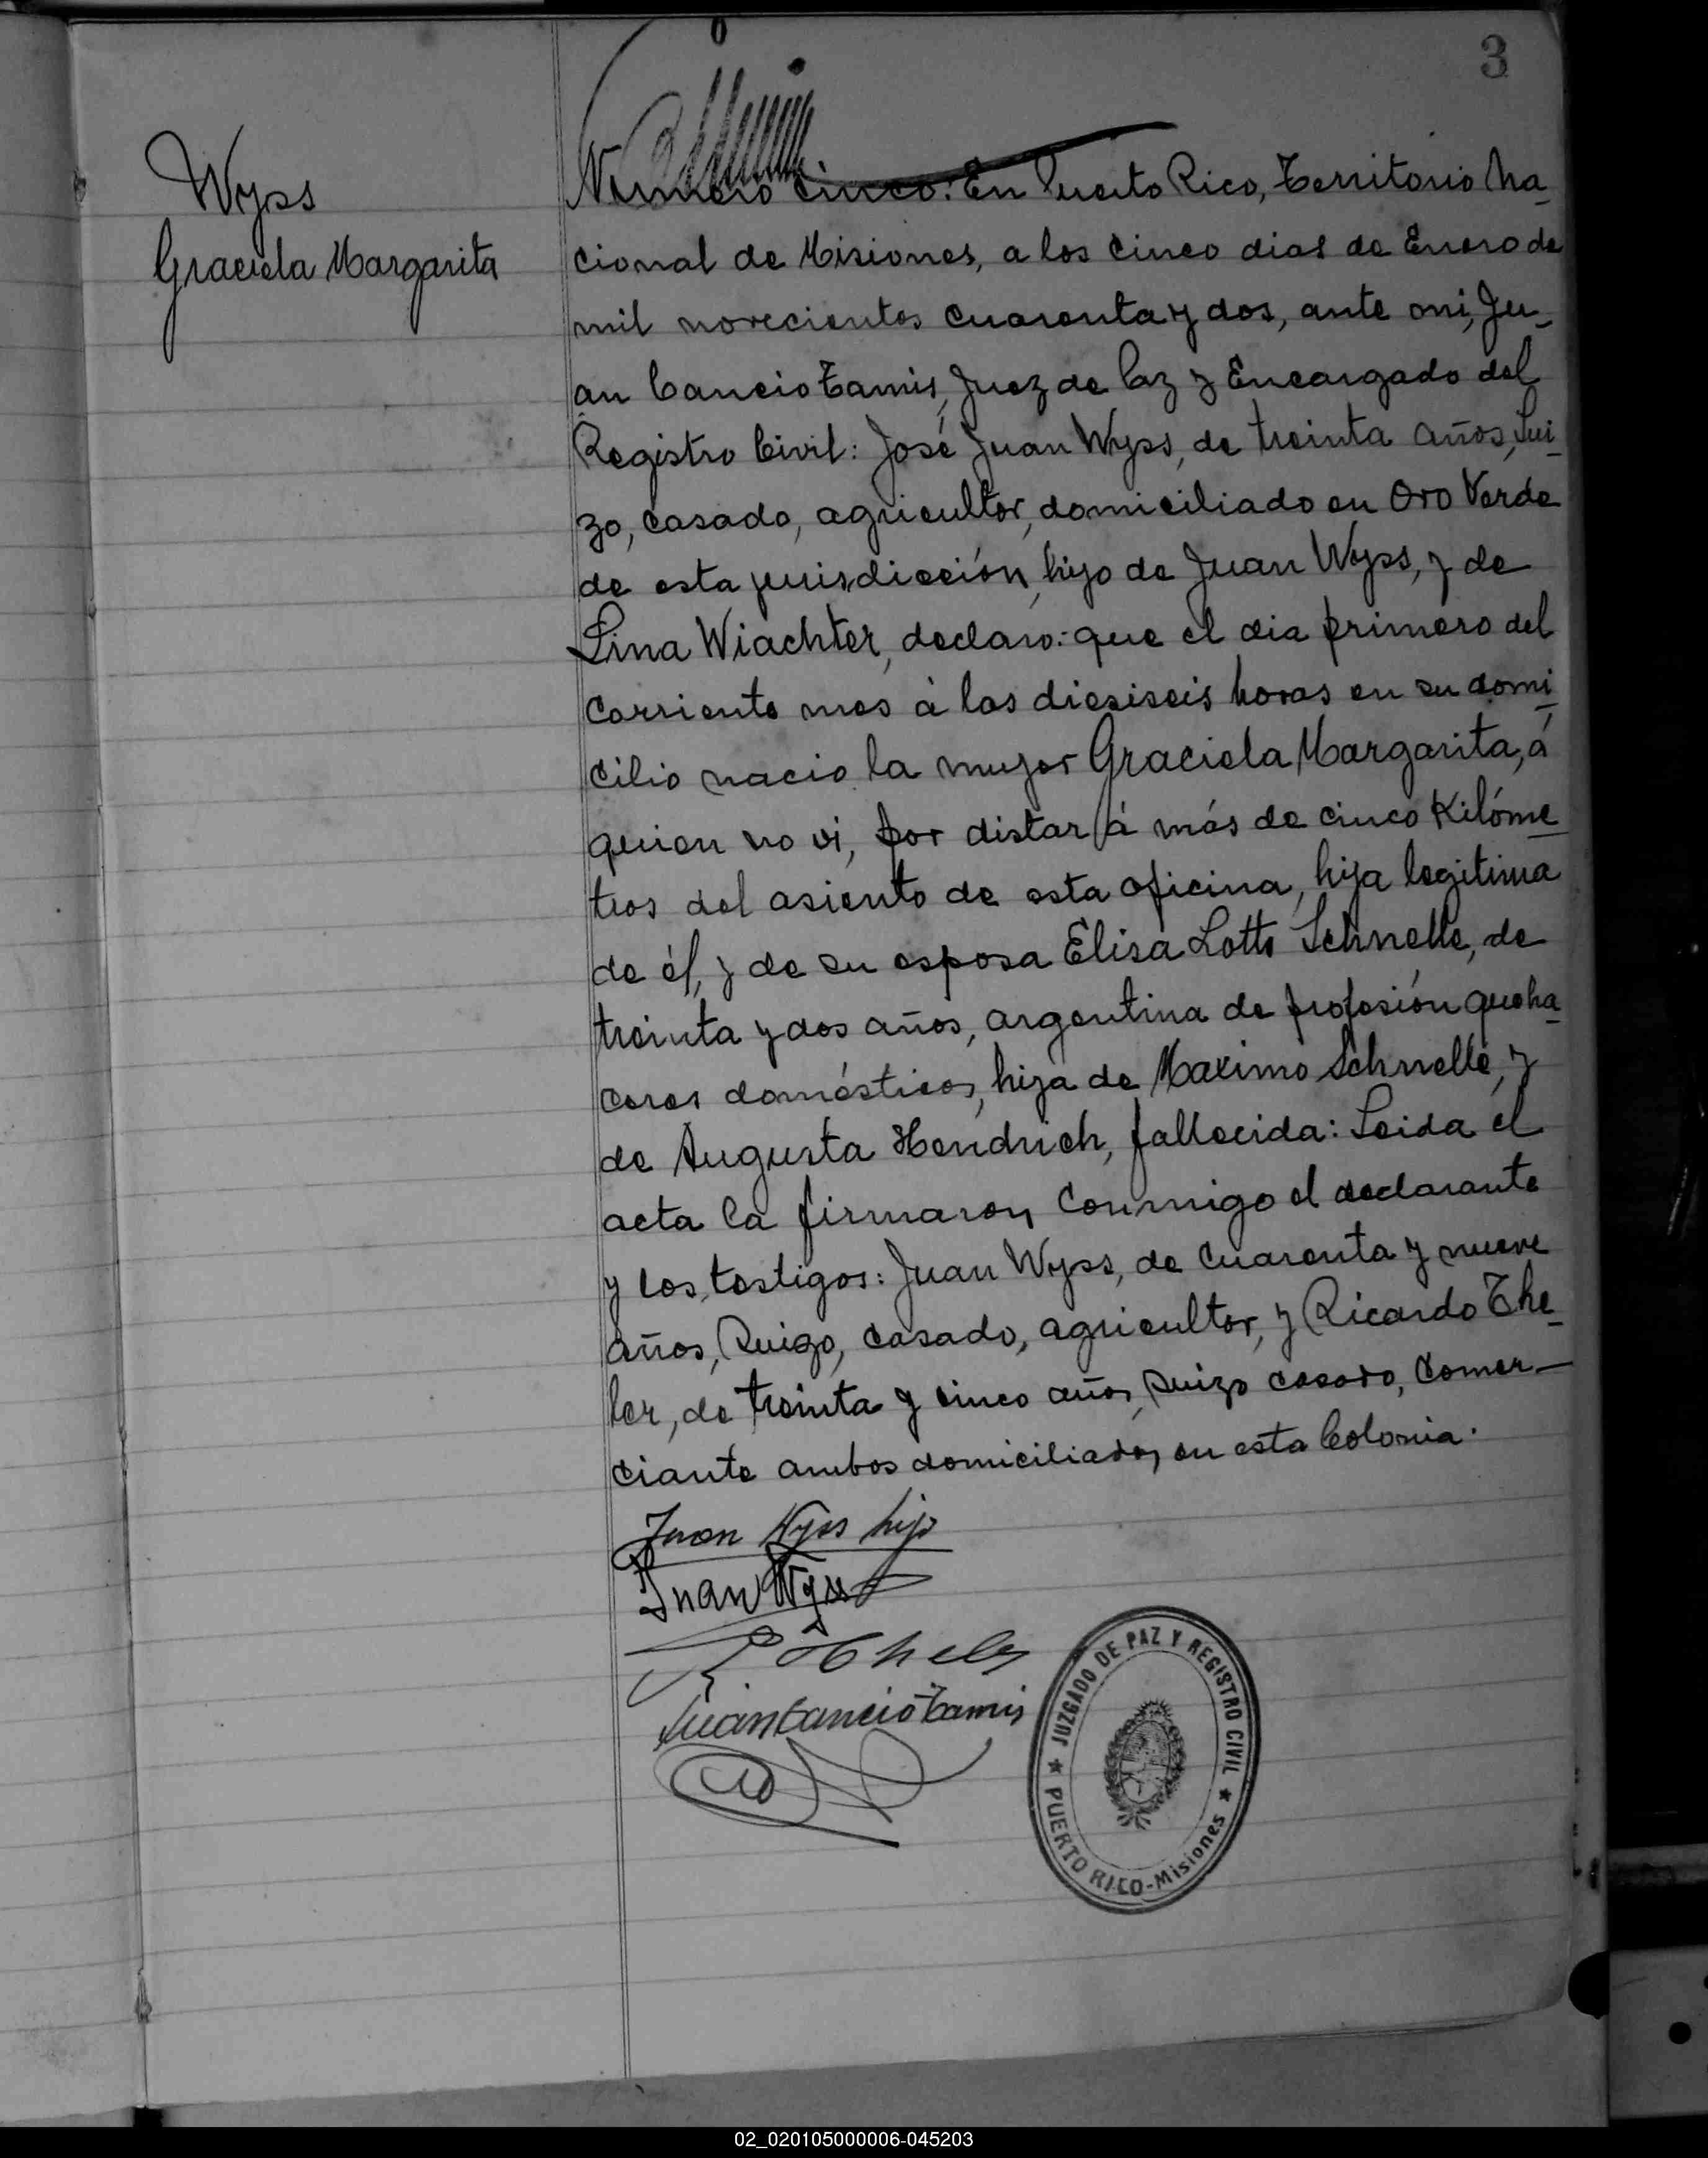 3
Wyss
Graciela Margarita
Número cinco: En Puerto Rico, Territorio Na-
cional de Misiones, a los cinco dias de Enero de
mil novecientos cuarenta y dos, ante mi, Ju-
an Cancio Tamis, Juez de Paz y Encargado del
Registro Civil: José Juan Wyss, de treinta años, Sui-
zo, casado, agricultor, domiciliado en Oro Verde
de esta jurisdicción, hijo de Juan Wyss, y de
Lina Wiachter, declaro: que el dia primero del
corriente mes à las diesiseis horas en su domi-
cilio nacio la mujer Graciela Margarita, á
quien no vi, por distar á más de cinco Kilóme-
tros del asiento de esta oficina, hija legitima
de él, y de su esposa Elisa Lotte Schnelle, de
treinta y dos años, argentina de profesión queha-
ceres domésticos, hija de Maximo Schnelle, y
de Augusta Hendrich, fallecida: Leida el
acta la firmaron conmigo el declarante
y los testigos: Juan Wyss, de cuarenta y nueve
años, Suizo, casado, agricultor, y Ricardo The-
ler, de treinta y cinco años, suizo casado, comer-
ciante ambos domiciliados en esta Colonia.
Juan Wyss hijo
Juan Wyss
R Theler
Juan Cancio Tamis
JUZGADO DE PAZ Y REGISTRO CIVIL
★ PUERTO RICO-Misiones ★
02_020105000006-045203